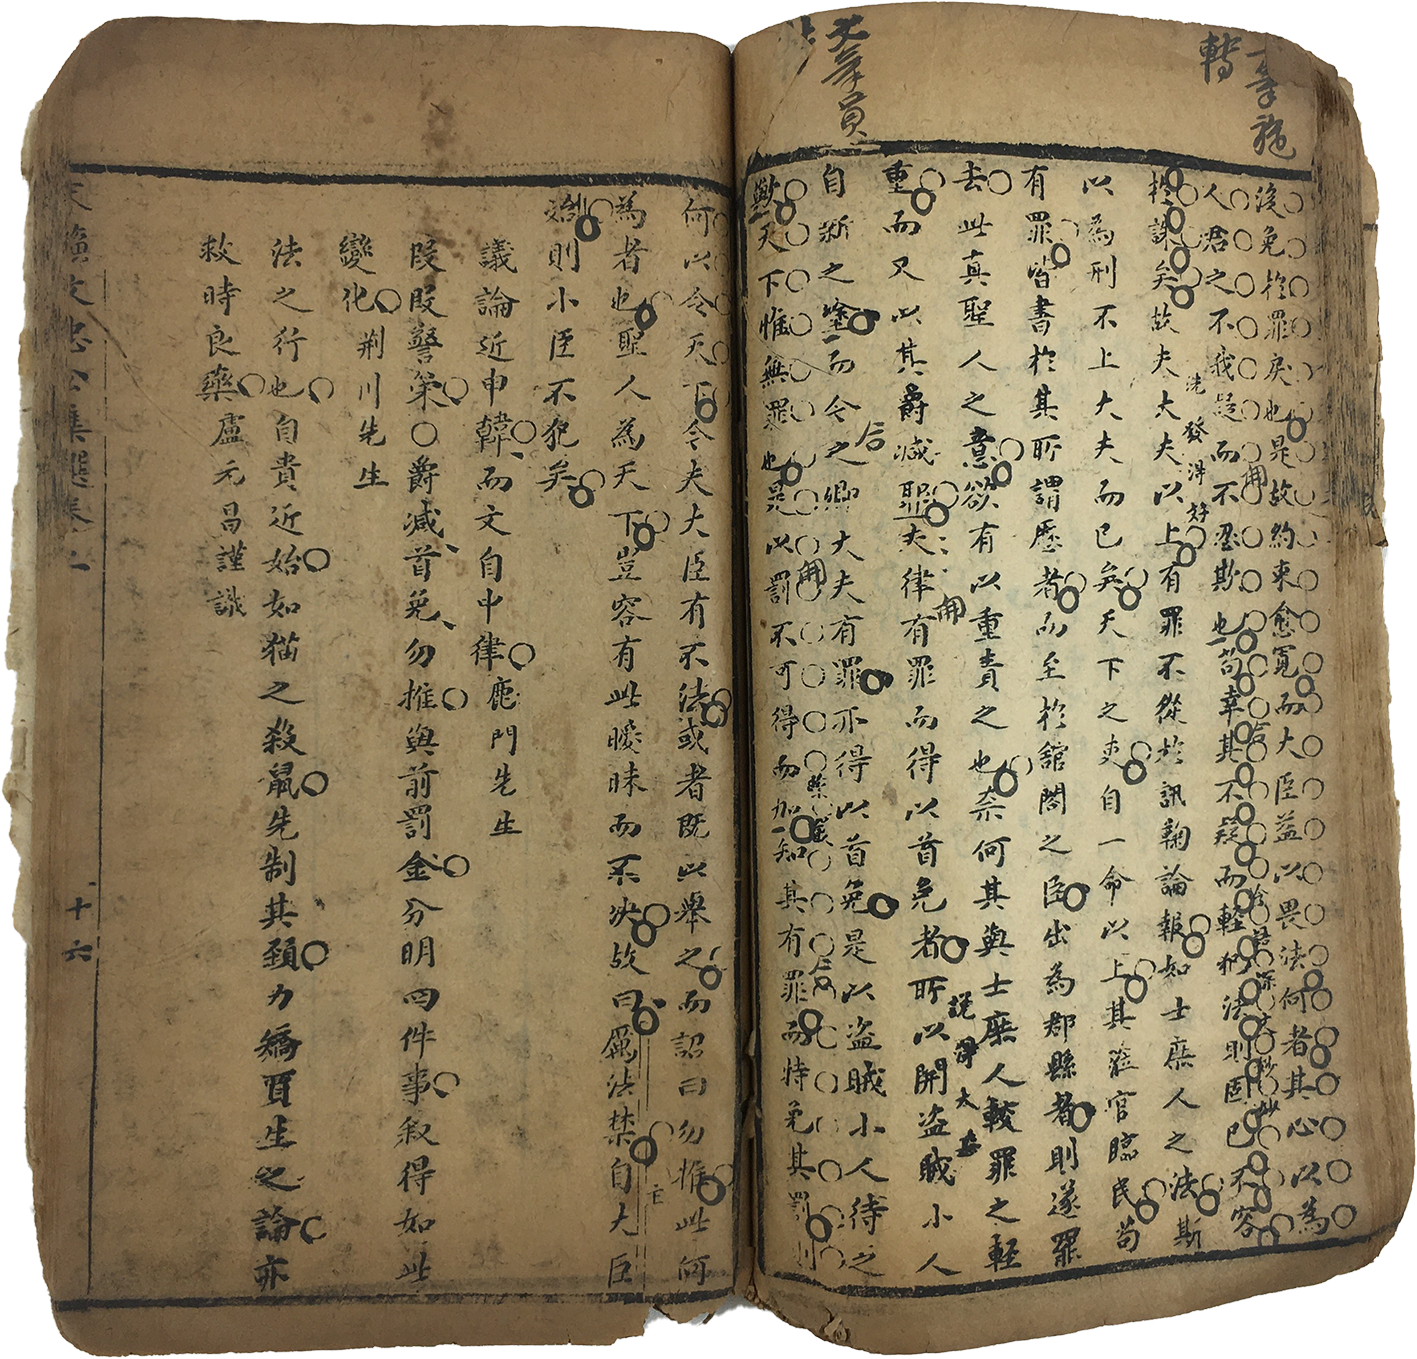 一筆疏
轉
没免於罪戾也是故約束愈寬而大臣益以畏法何者其心以為
人君之不我疑而不忍欺也苟幸其不疑而輕犯法則固已不容
於誅矣故夫大夫以上有罪不從於訊鞫論報如士庶人之法斯
以為刑不上大夫而已矣天下之吏自一命以上其涖官臨民苟
有罪皆書於其所謂歷者而至於館閣之臣出為郡縣者則遂罷
去此真聖人之意欲有以重責之也奈何其與士庶人較罪之輕
重而又以其爵減罪夫律有罪而得以首免者所以開盜賊小人
自新之塗而令之卿大夫有罪亦得以首免是以盜賊小人待之
歟天下惟無罪也是以罰不可得而加知其有罪而特免其罰則
何以令天下令夫大臣有不法或者既以舉之而詔曰勿推此何
為者也聖人為天下豈容有此曖昧而不决故曰厲法禁自大臣
始則小臣不犯矣
議論近申韓而文自中律鹿門先生
段段警策○爵減首免勿推與前罰金分明四件事叙得如此
變化荆川先生
法之行也自貴近始如猫之殺鼠先制其頚力矯賈生之論亦
救時良藥盧元昌謹識
十六